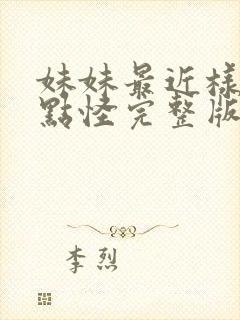 妹妹最近樣
點怪完整版
李烈